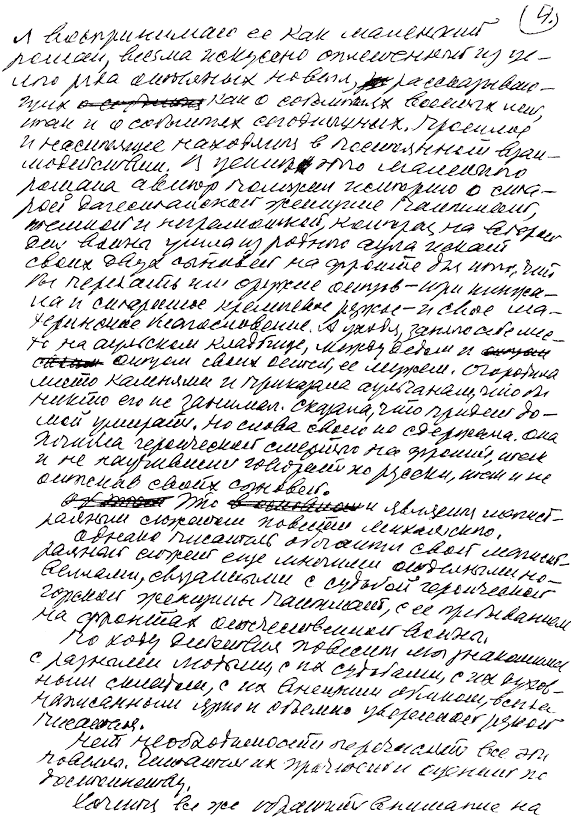 4.
Я воспринимаю ее как маленький
роман, весьма искусно сплетенный из це-
лого ряда отдельных новелл, рассказываю-
щих как о событиях военных лет,
так и о событиях сегодняшних. Прошлое
и настоящее находятся в постоянном взаи-
модействии. В центр этого маленького
романа автор положил историю о ста-
рой дагестанской женщине
темной и неграмотной, которая на второй
день войны ушла из родного аула искать
своих двух сыновей на фронте для того, что
бы передать им оружие отцов – три кинжа-
ла и старинное кремневое ружье – и свое ма-
теринское благословение. А уходя, заняла себе мес-
то на аульском кладбище, между дедом и
отцом своих детей, ее мужем. Огородила
место камнями и приказала аульчанам, что бы
никто его не занимал. Сказала, что придет до-
мой умирать. Но слова своего не сдержала. Она
погибла героической смертью на фронте, так
и не научившись говорить по русски, так и не
отыскав своих сыновей.
Это и является магист-
ральным сюжетом повести
Однако писатель обогатил свой магист-
ральный сюжет еще многими отдельными но-
веллами, связанными с судьбой героической
горской женщины с ее пребыванием
на фронтах отечественной войны.
По ходу действия повести мы знакомимся
с разными людьми, с их судьбами, с их духов-
ным с их внешним обликом,
написанным ярко и объемно уверенной рукой
писателя.
Нет необходимости перечислять все эти
новеллы. Читатели их прочтут и оценят по
достоинству.
Хочется все же обратить внимание на